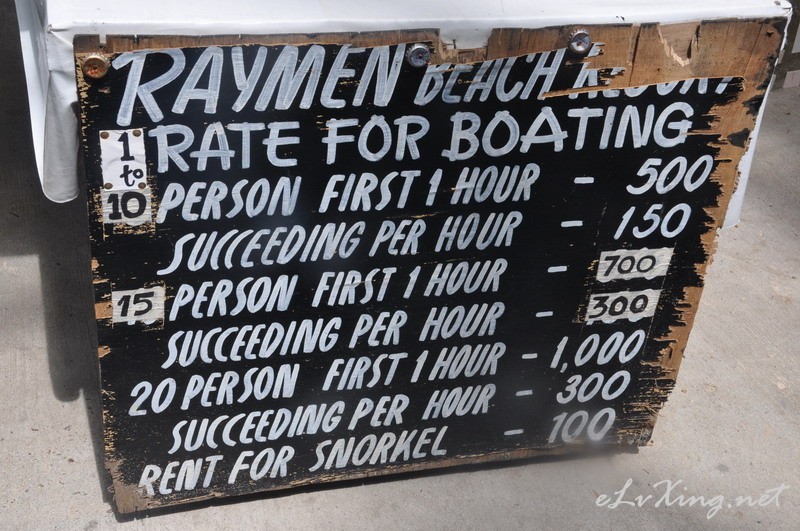 RAYMEN BEACH RESORT
RATE FOR BOATING
1 to 10 PERSON FIRST 1 HOUR - 500
SUCCEEDING PER HOUR - 150
15 PERSON FIRST 1 HOUR - 700
SUCCEEDING PER HOUR - 300
20 PERSON FIRST 1 HOUR - 1,000
SUCCEEDING PER HOUR - 300
RENT FOR SNORKEL - 100
eLvXing.net